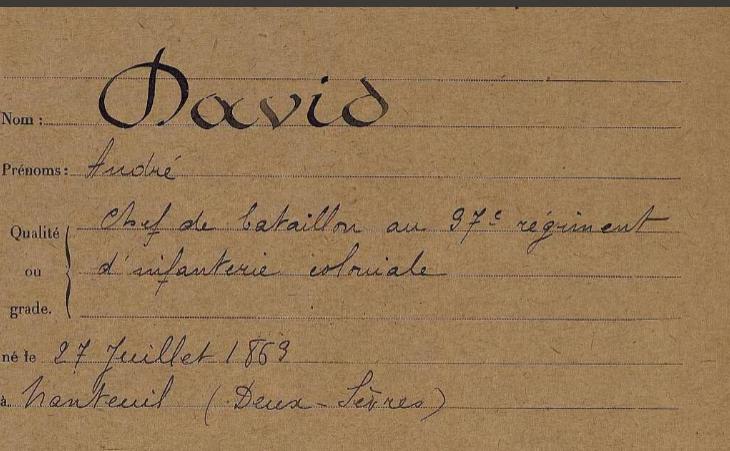 Nom : David
Prénoms : André
Qualité ou grade. Chef de bataillon au 37e régiment
d'infanterie coloniale
né le 27 Juillet 1869
à Nanteuil (Deux-Sèvres)